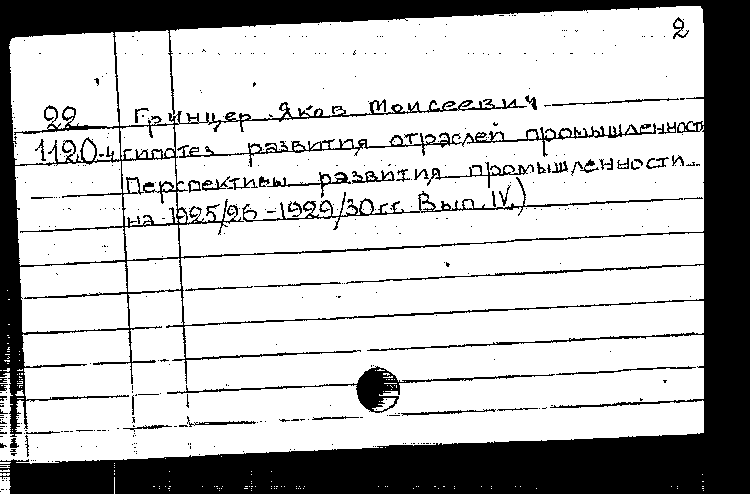 2
22 Гринцер Яков Моисеевич
1120-4 гипотез развития отраслей промышленности
Перспективы развития промышленности
на 1925/26-1929/30 гг. Вып. IV.)